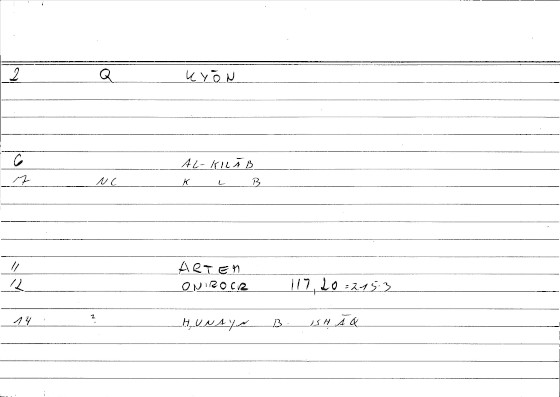 2 Q KYŌN
6 AL-KILĀB
7 NC K L B
11 ARTEM
12 ONIROCR 117,20=215.3
14 ? ḤUNAYN B. ISḤĀQ